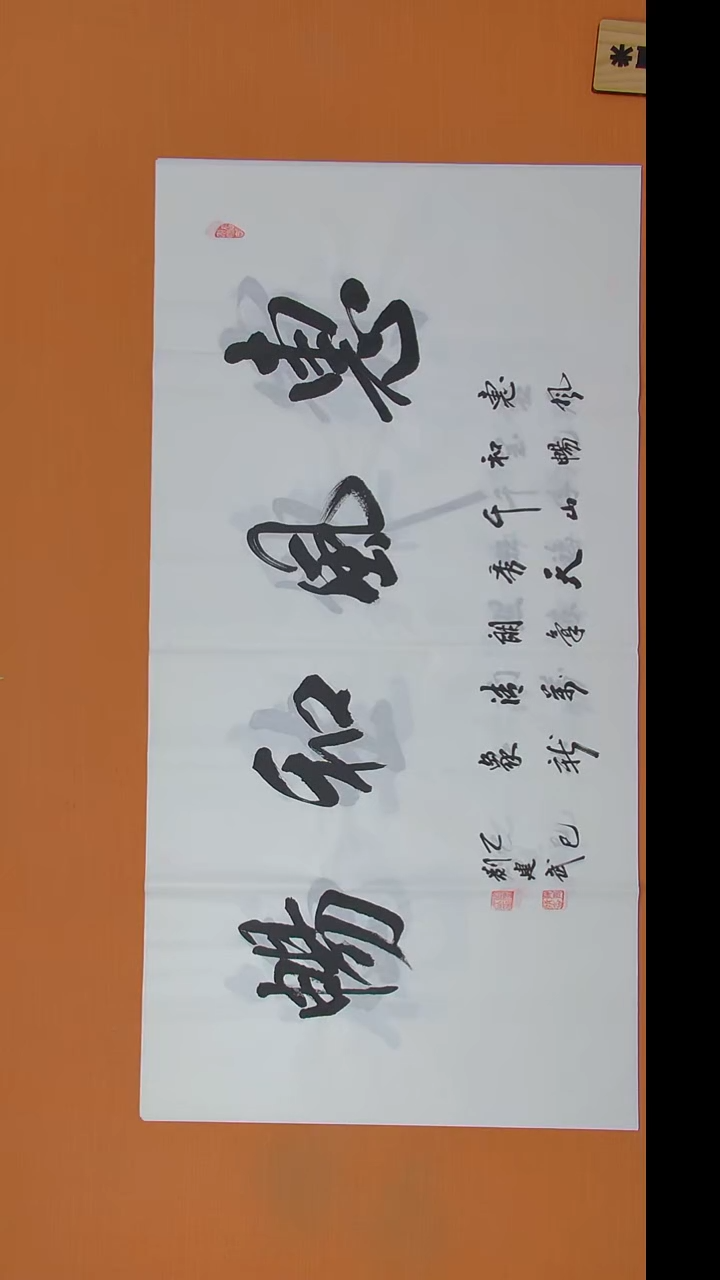 惠風和暢
惠風
和暢
千山
秀天
朗氣
清萬
象新
乙巳
劉建武